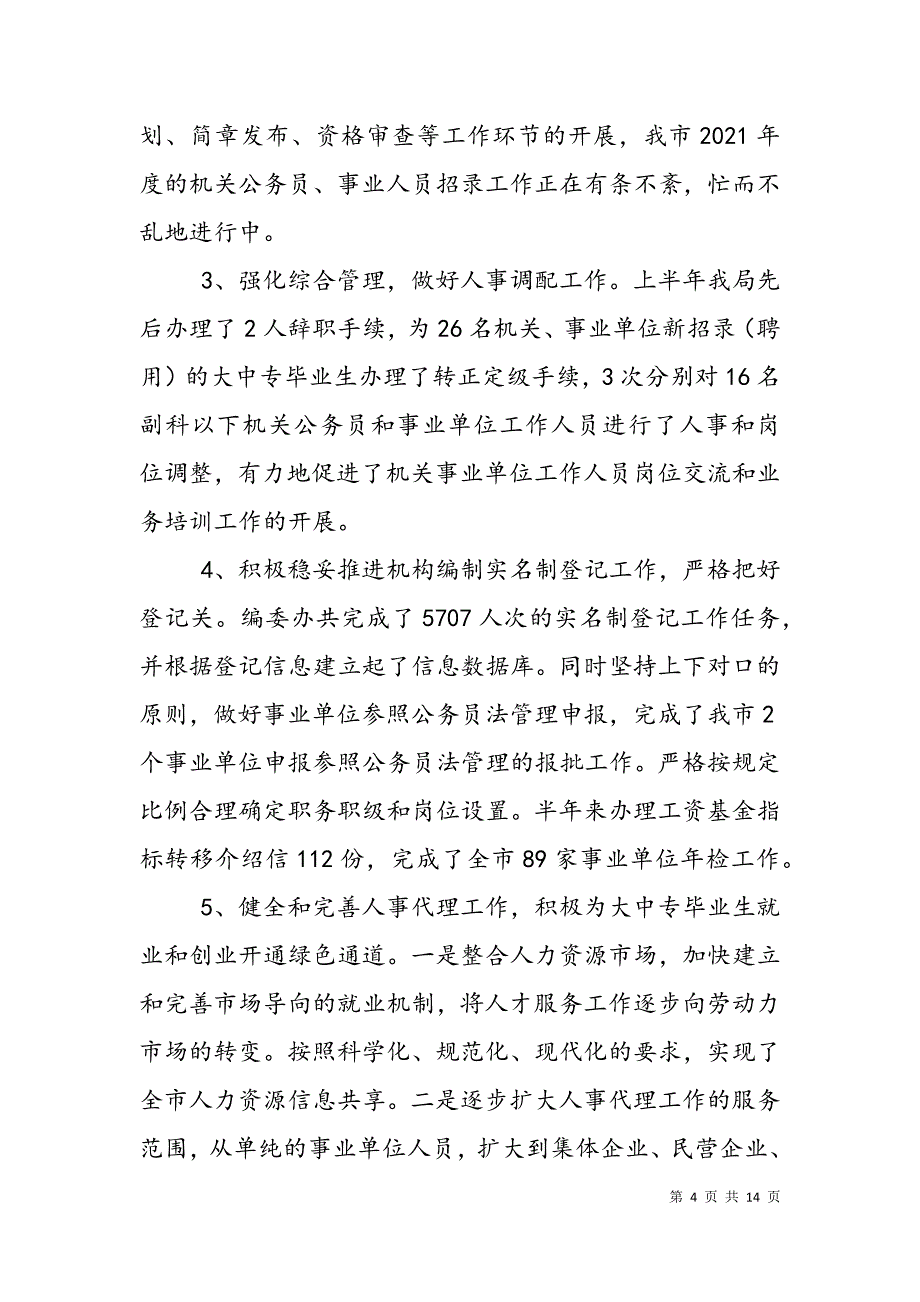 划、简章发布、资格审查等工作环节的开展，我市 2021 年
度的机关公务员、事业人员招录工作正在有条不紊，忙而不
乱地进行中。
3、强化综合管理，做好人事调配工作。上半年我局先
后办理了 2 人辞职手续，为 26 名机关、事业单位新招录（聘
用）的大中专毕业生办理了转正定级手续，3 次分别对 16 名
副科以下机关公务员和事业单位工作人员进行了人事和岗
位调整，有力地促进了机关事业单位工作人员岗位交流和业
务培训工作的开展。
4、积极稳妥推进机构编制实名制登记工作，严格把好
登记关。编委办共完成了 5707 人次的实名制登记工作任务，
并根据登记信息建立起了信息数据库。同时坚持上下对口的
原则，做好事业单位参照公务员法管理申报，完成了我市 2
个事业单位申报参照公务员法管理的报批工作。严格按规定
比例合理确定职务职级和岗位设置。半年来办理工资基金指
标转移介绍信 112 份，完成了全市 89 家事业单位年检工作。
5、健全和完善人事代理工作，积极为大中专毕业生就
业和创业开通绿色通道。一是整合人力资源市场，加快建立
和完善市场导向的就业机制，将人才服务工作逐步向劳动力
市场的转变。按照科学化、规范化、现代化的要求，实现了
全市人力资源信息共享。二是逐步扩大人事代理工作的服务
范围，从单纯的事业单位人员，扩大到集体企业、民营企业、
第 4 页 共 14 页